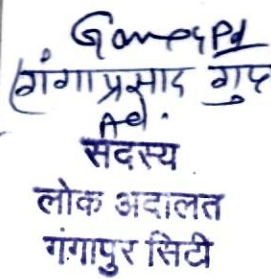 (गंगाप्रसाद गुप्त
Ad.
सदस्य
लोक अदालत
गंगापुर सिटी